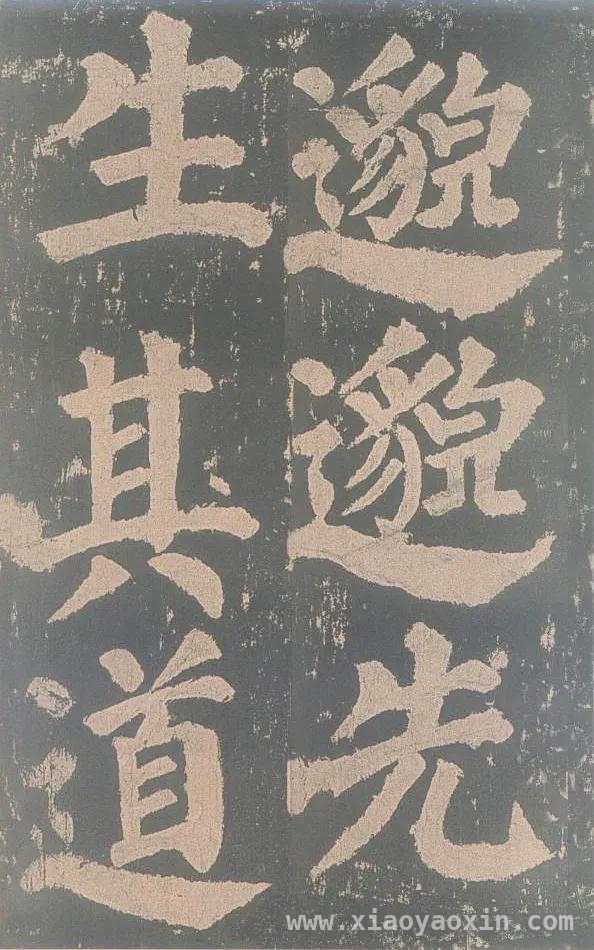 邈邈先
生其道
www.xiaoyaoxin.com